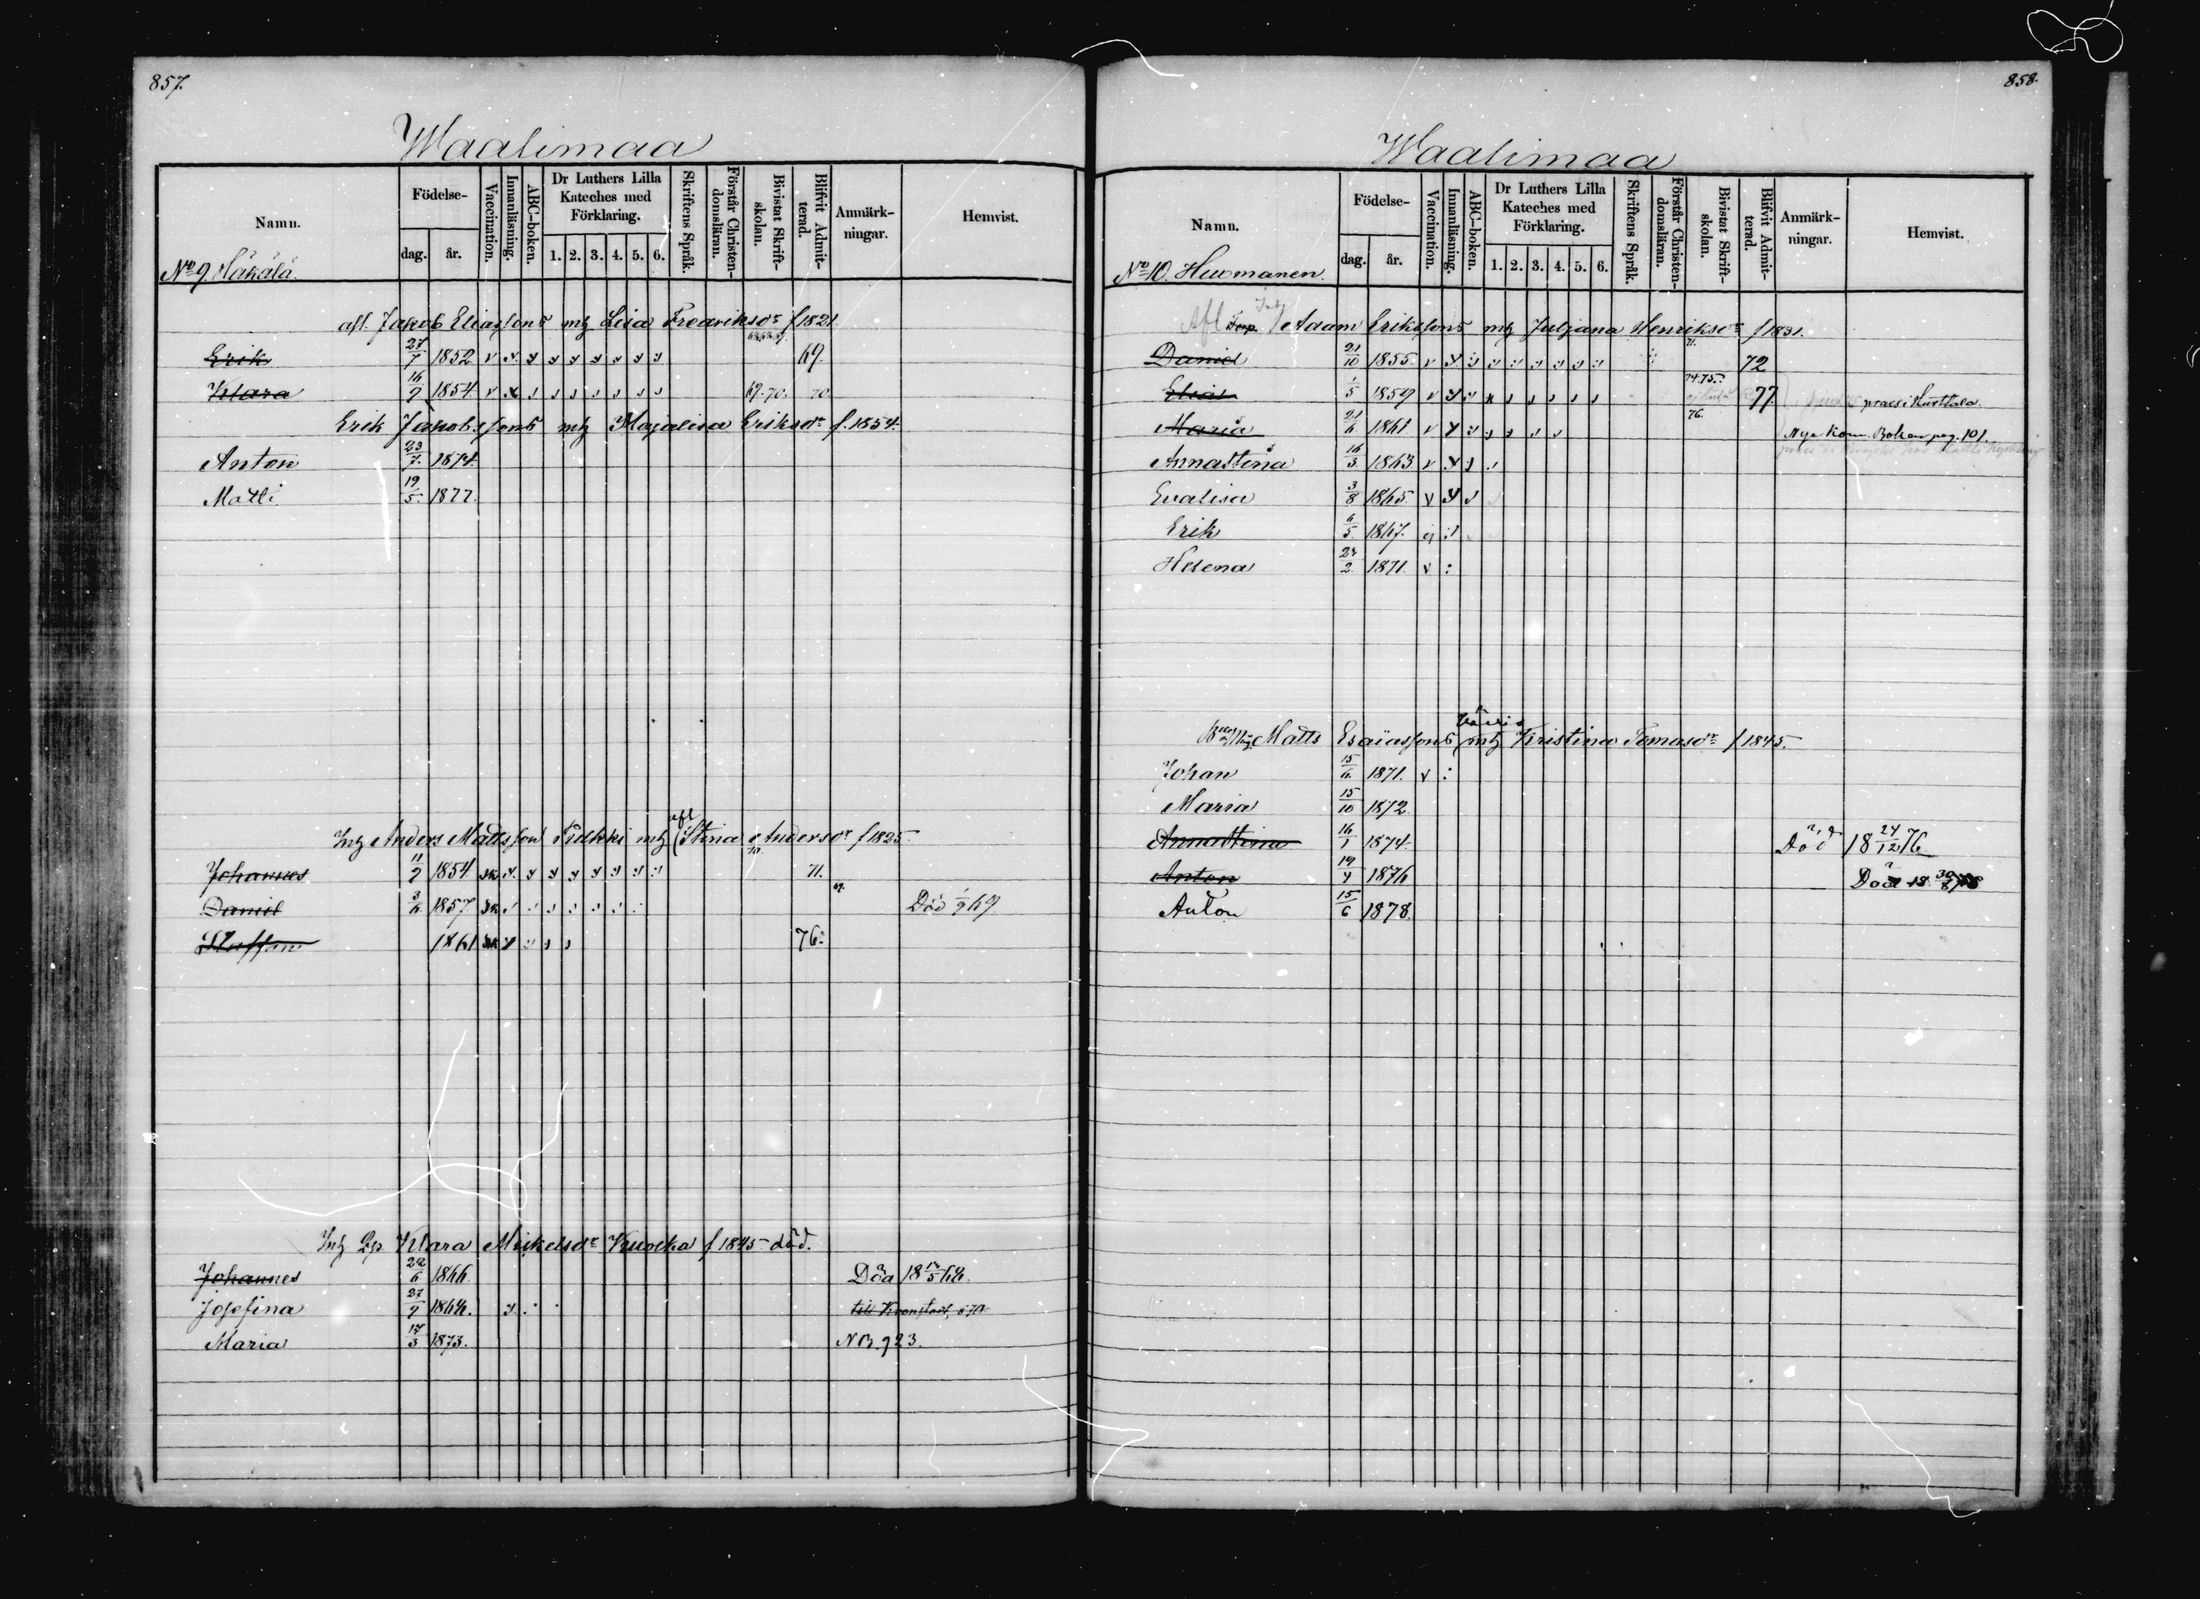 857.
Waalimaa
Namn. Födelse- dag. år. Vaccination. Innanläsning. ABC-boken. Dr Luthers Lilla Kateches med Förklaring. 1. 2. 3. 4. 5. 6. Skriftens Språk. Förstår Christendomsläran. Bivistat Skriftskolan. Blifvit Admitterad. Anmärkningar. Hemvist.
No 9 Häkälä.
afl. Jakob Eliassons mh Lisa Fredriksdr f 1821
Erik 27/7 1852 v 69
Klara 16/9 1854 v 69.70. 70
Erik Jakobssons mh Majalisa Eriksdr f. 1854.
Anton 23/7. 1874
Matti 19/5. 1877.
Inh Anders Mattsson mh (afl Stina Andersdr f 1825
Johannes 11/2 1854 71.
Daniel 3/6 1857 Död 1/9 69
Staffan 1861 76.
Inh Klara Mickelsdr f 1845 död.
Johannes 1866. Död
Josefina 27/9 till Kronstadt
Maria 17/3 1873. N B. 923.
858.
Waalimaa
Namn. Födelse- dag. år. Vaccination. Innanläsning. ABC-boken. Dr Luthers Lilla Kateches med Förklaring. 1. 2. 3. 4. 5. 6. Skriftens Språk. Förstår Christendomsläran. Bivistat Skriftskolan. Blifvit Admitterad. Anmärkningar. Hemvist.
No 10. Huumanen.
Afl Torp Adam Erikssons mh Juljana Henriksdr f 1831.
Daniel 21/10 1855 v 71. 72
Elias 1/5 1859 v 74.75. 77 praes i Kurttala.
Maria 21/6 1861 v 76. Nya Kom. Boken pag. 101.
Annastina 16/3 1863 v
Evalisa 3/8 1865 v
Erik 6/5 1867. ej
Helena 1871. v
Matts Esaiassons mh Kristina Tomasdr f 1845.
Johan 15/6 1871. v
Maria 15/10 1872
Annastina 16/1 1874 Död 18 24/12 76
Anton 19/4 1876 Död
Anton 15/6 1878.